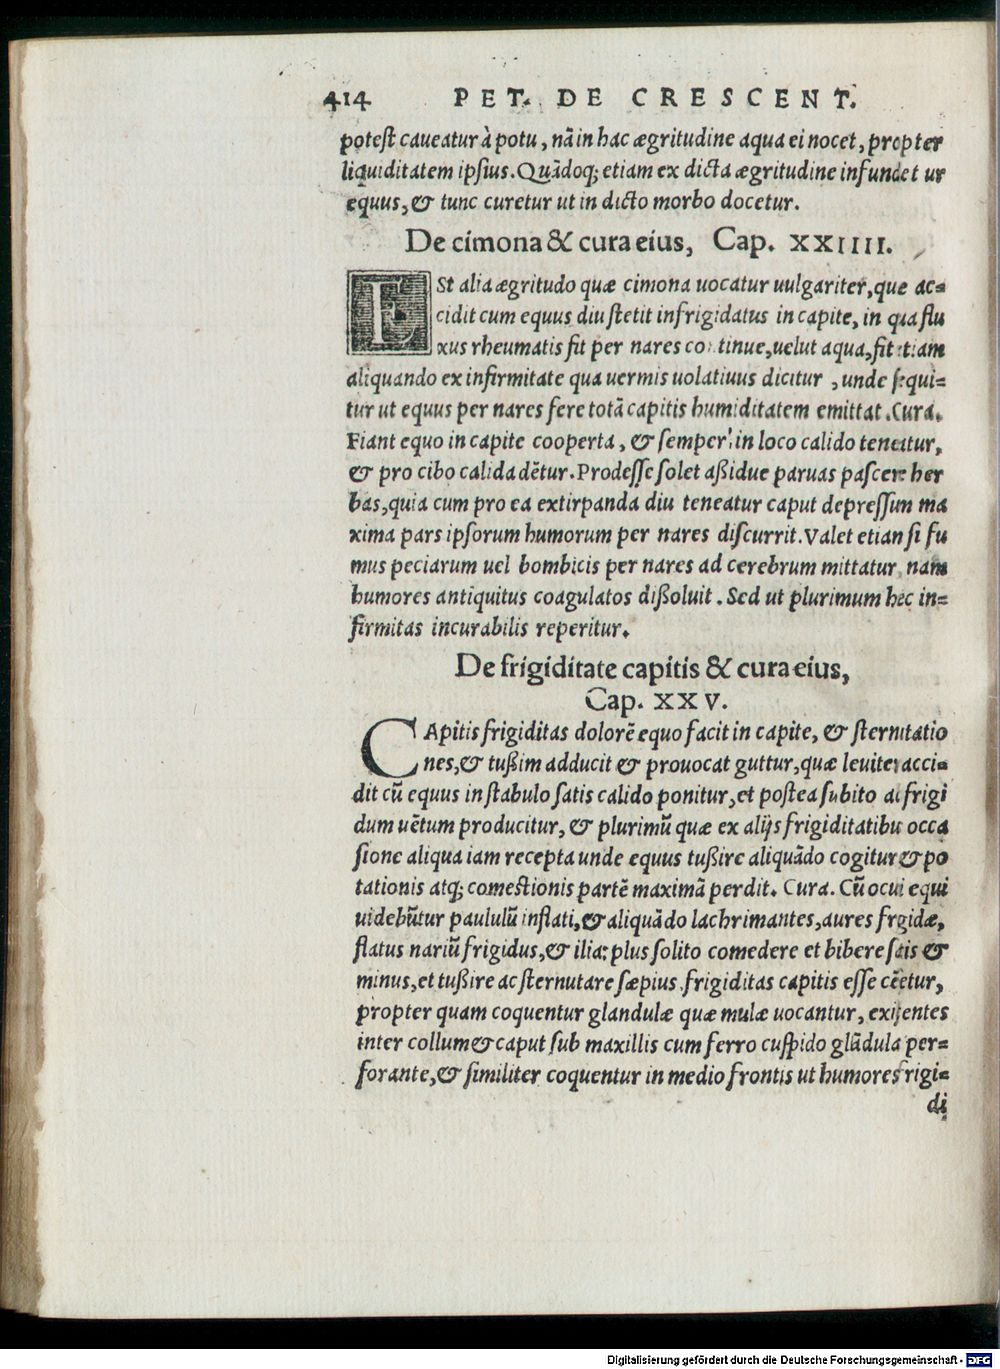 414 PET. DE CRESCENT.
potest caueatur à potu, nã in hac ægritudine aqua ei nocet, propter
liquiditatem ipsius. Quãdoq; etiam ex dicta ægritudine infundet ur
equus, & tunc curetur ut in dicto morbo docetur.
De cimona & cura eius, Cap. XXIIII.
ESt alia ægritudo quæ cimona uocatur uulgariter, que ac=
cidit cum equus diu stetit infrigidatus in capite, in qua flu
xus rheumatis fit per nares co tinue, uelut aqua, fit etiam
aliquando ex infirmitate qua uermis uolatiuus dicitur, unde sequi=
tur ut equus per nares fere totã capitis humiditatem emittat. Cura.
Fiant equo in capite cooperta, & semper in loco calido teneatur,
& pro cibo calida dẽtur. Prodesse solet aßidue paruas pascere her
bas, quia cum pro ea extirpanda diu teneatur caput depressum ma
xima pars ipsorum humorum per nares discurrit. Valet etian si fu
mus peciarum uel bombicis per nares ad cerebrum mittatur, nam
humores antiquitus coagulatos dißoluit. Sed ut plurimum hec in=
firmitas incurabilis reperitur.
De frigiditate capitis & cura eius,
Cap. XXV.
CApitis frigiditas dolorẽ equo facit in capite, & sternutatio
nes, & tußim adducit & prouocat guttur, quæ leuiter acci=
dit cũ equus in stabulo satis calido ponitur, et postea subito ad frigi
dum uẽtum producitur, & plurimũ quæ ex alijs frigiditatibu occa
sione aliqua iam recepta unde equus tußire aliquãdo cogitur & po
tationis atq; comestionis partẽ maximã perdit. Cura. Cũ ocui equi
uidebũtur paululũ inflati, & aliquãdo lachrimantes, aures frgidæ,
flatus nariũ frigidus, & iliæ: plus solito comedere et bibere satis &
minus, et tußire ac sternutare sæpius. frigiditas capitis esse cẽetur,
propter quam coquentur glandulæ quæ mulæ uocantur, existentes
inter collum & caput sub maxillis cum ferro cuspido glãdula per=
forante, & similiter coquentur in medio frontis ut humores frigi=
di
Digitalisierung gefördert durch die Deutsche Forschungsgemeinschaft - DFG